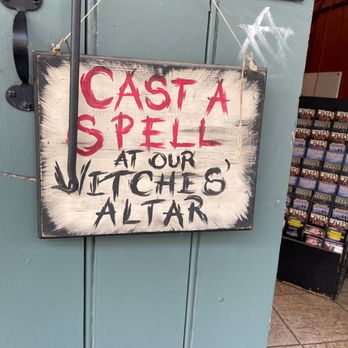 CAST A
SPELL
AT OUR
WITCHES'
ALTAR